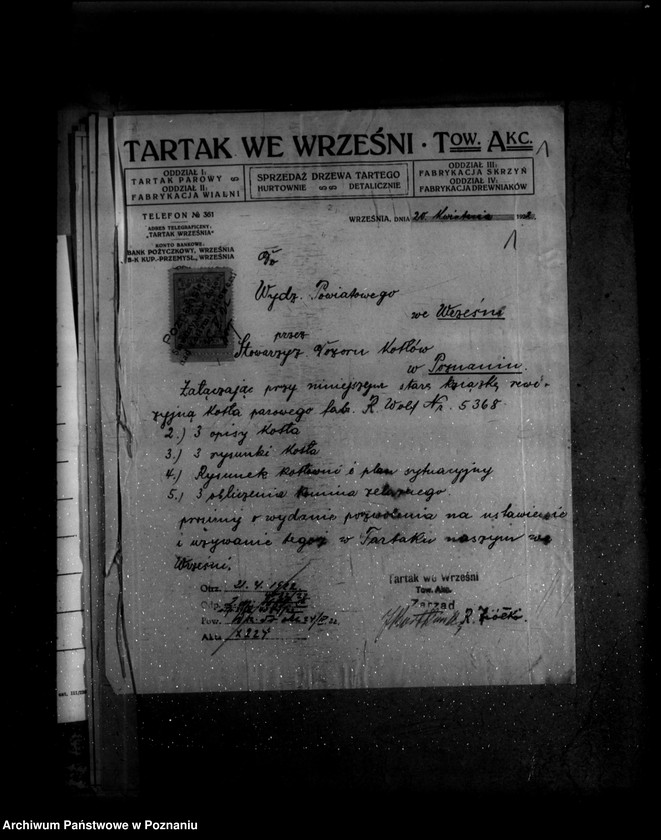 TARTAK WE WRZEŚNI · TOW. AKC.
ODDZIAŁ I:
TARTAK PAROWY
ODDZIAŁ II:
FABRYKACJA WIALNI
SPRZEDAŻ DRZEWA TARTEGO
HURTOWNIE DETALICZNIE
ODDZIAŁ III:
FABRYKACJA SKRZYŃ
ODDZIAŁ IV:
FABRYKACJA DREWNIAKÓW
TELEFON № 361
ADRES TELEGRAFICZNY:
„TARTAK WRZEŚNIA"
KONTO BANKOWE:
BANK POŻYCZKOWY, WRZEŚNIA
B-K KUP.-PRZEMYSŁ., WRZEŚNIA
WRZEŚNIA, DNIA 20 Kwietnia
Do
Wydz. Powiatowego
we Wrześni
przez
Stowarzysz Dozoru Kotłów
w Poznaniu.
Załączając przy niniejszym starą książkę rewi-
zyjną kotła parowego fabr. R. Wolf Nr. 5368
2.) 3 opisy kotła
3.) 3 rysunki kotła
4.) Rysunek kotłowni i plan sytuacyjny
5.) 3 obliczenia komina żelaznego
prosimy o wydanie pozwolenia na ustawienie
i używanie tegoż w Tartaku naszym we
Wrześni.
Tartak we Wrześni
Tow. Akc.
Zarząd
Otrz. 21. 4.
Odp.
Pow.
Akta
Archiwum Państwowe w Poznaniu